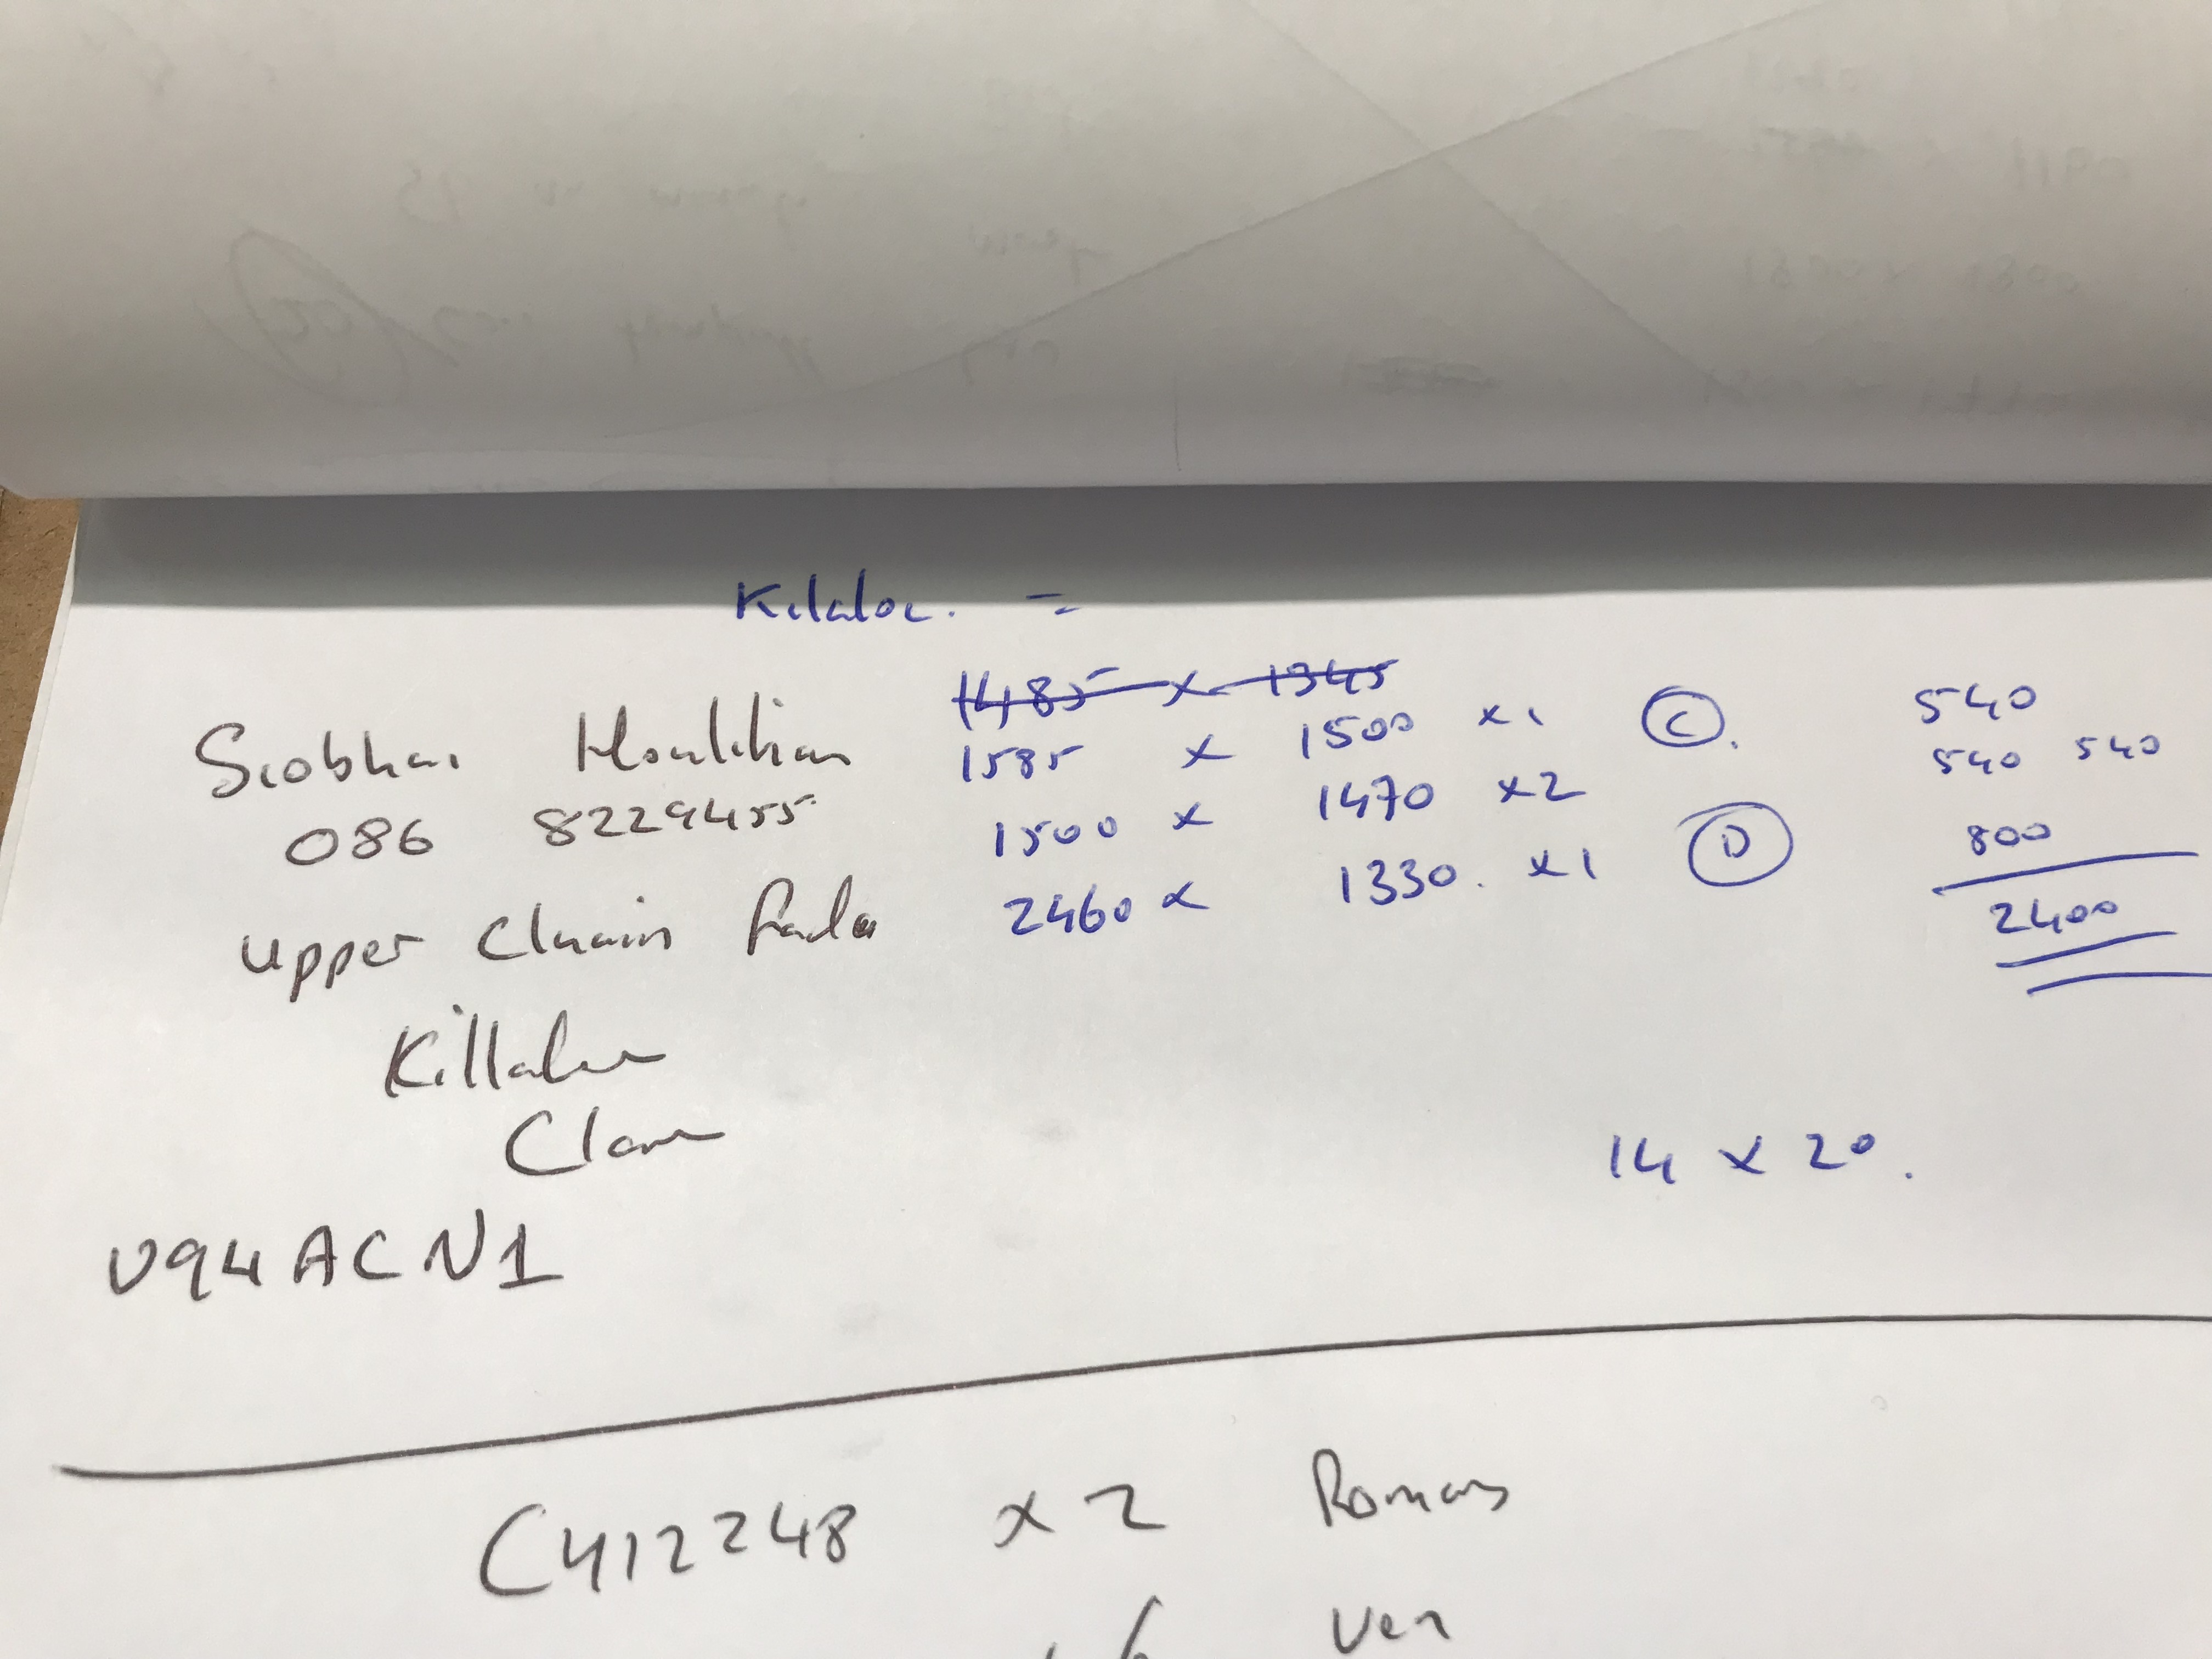 Kilaloe. =
1485 x 1345
Siobhan Houlihan
1585 x 1500 x1 C. 540
086 8229455
1500 x 1470 x2 540 540
Upper Cluain Fada
2460 x 1330. x1 D 800
2400
Killaloe
Clare
14 x 20.
V94ACN1
C412248 x 2 Romans
Ven